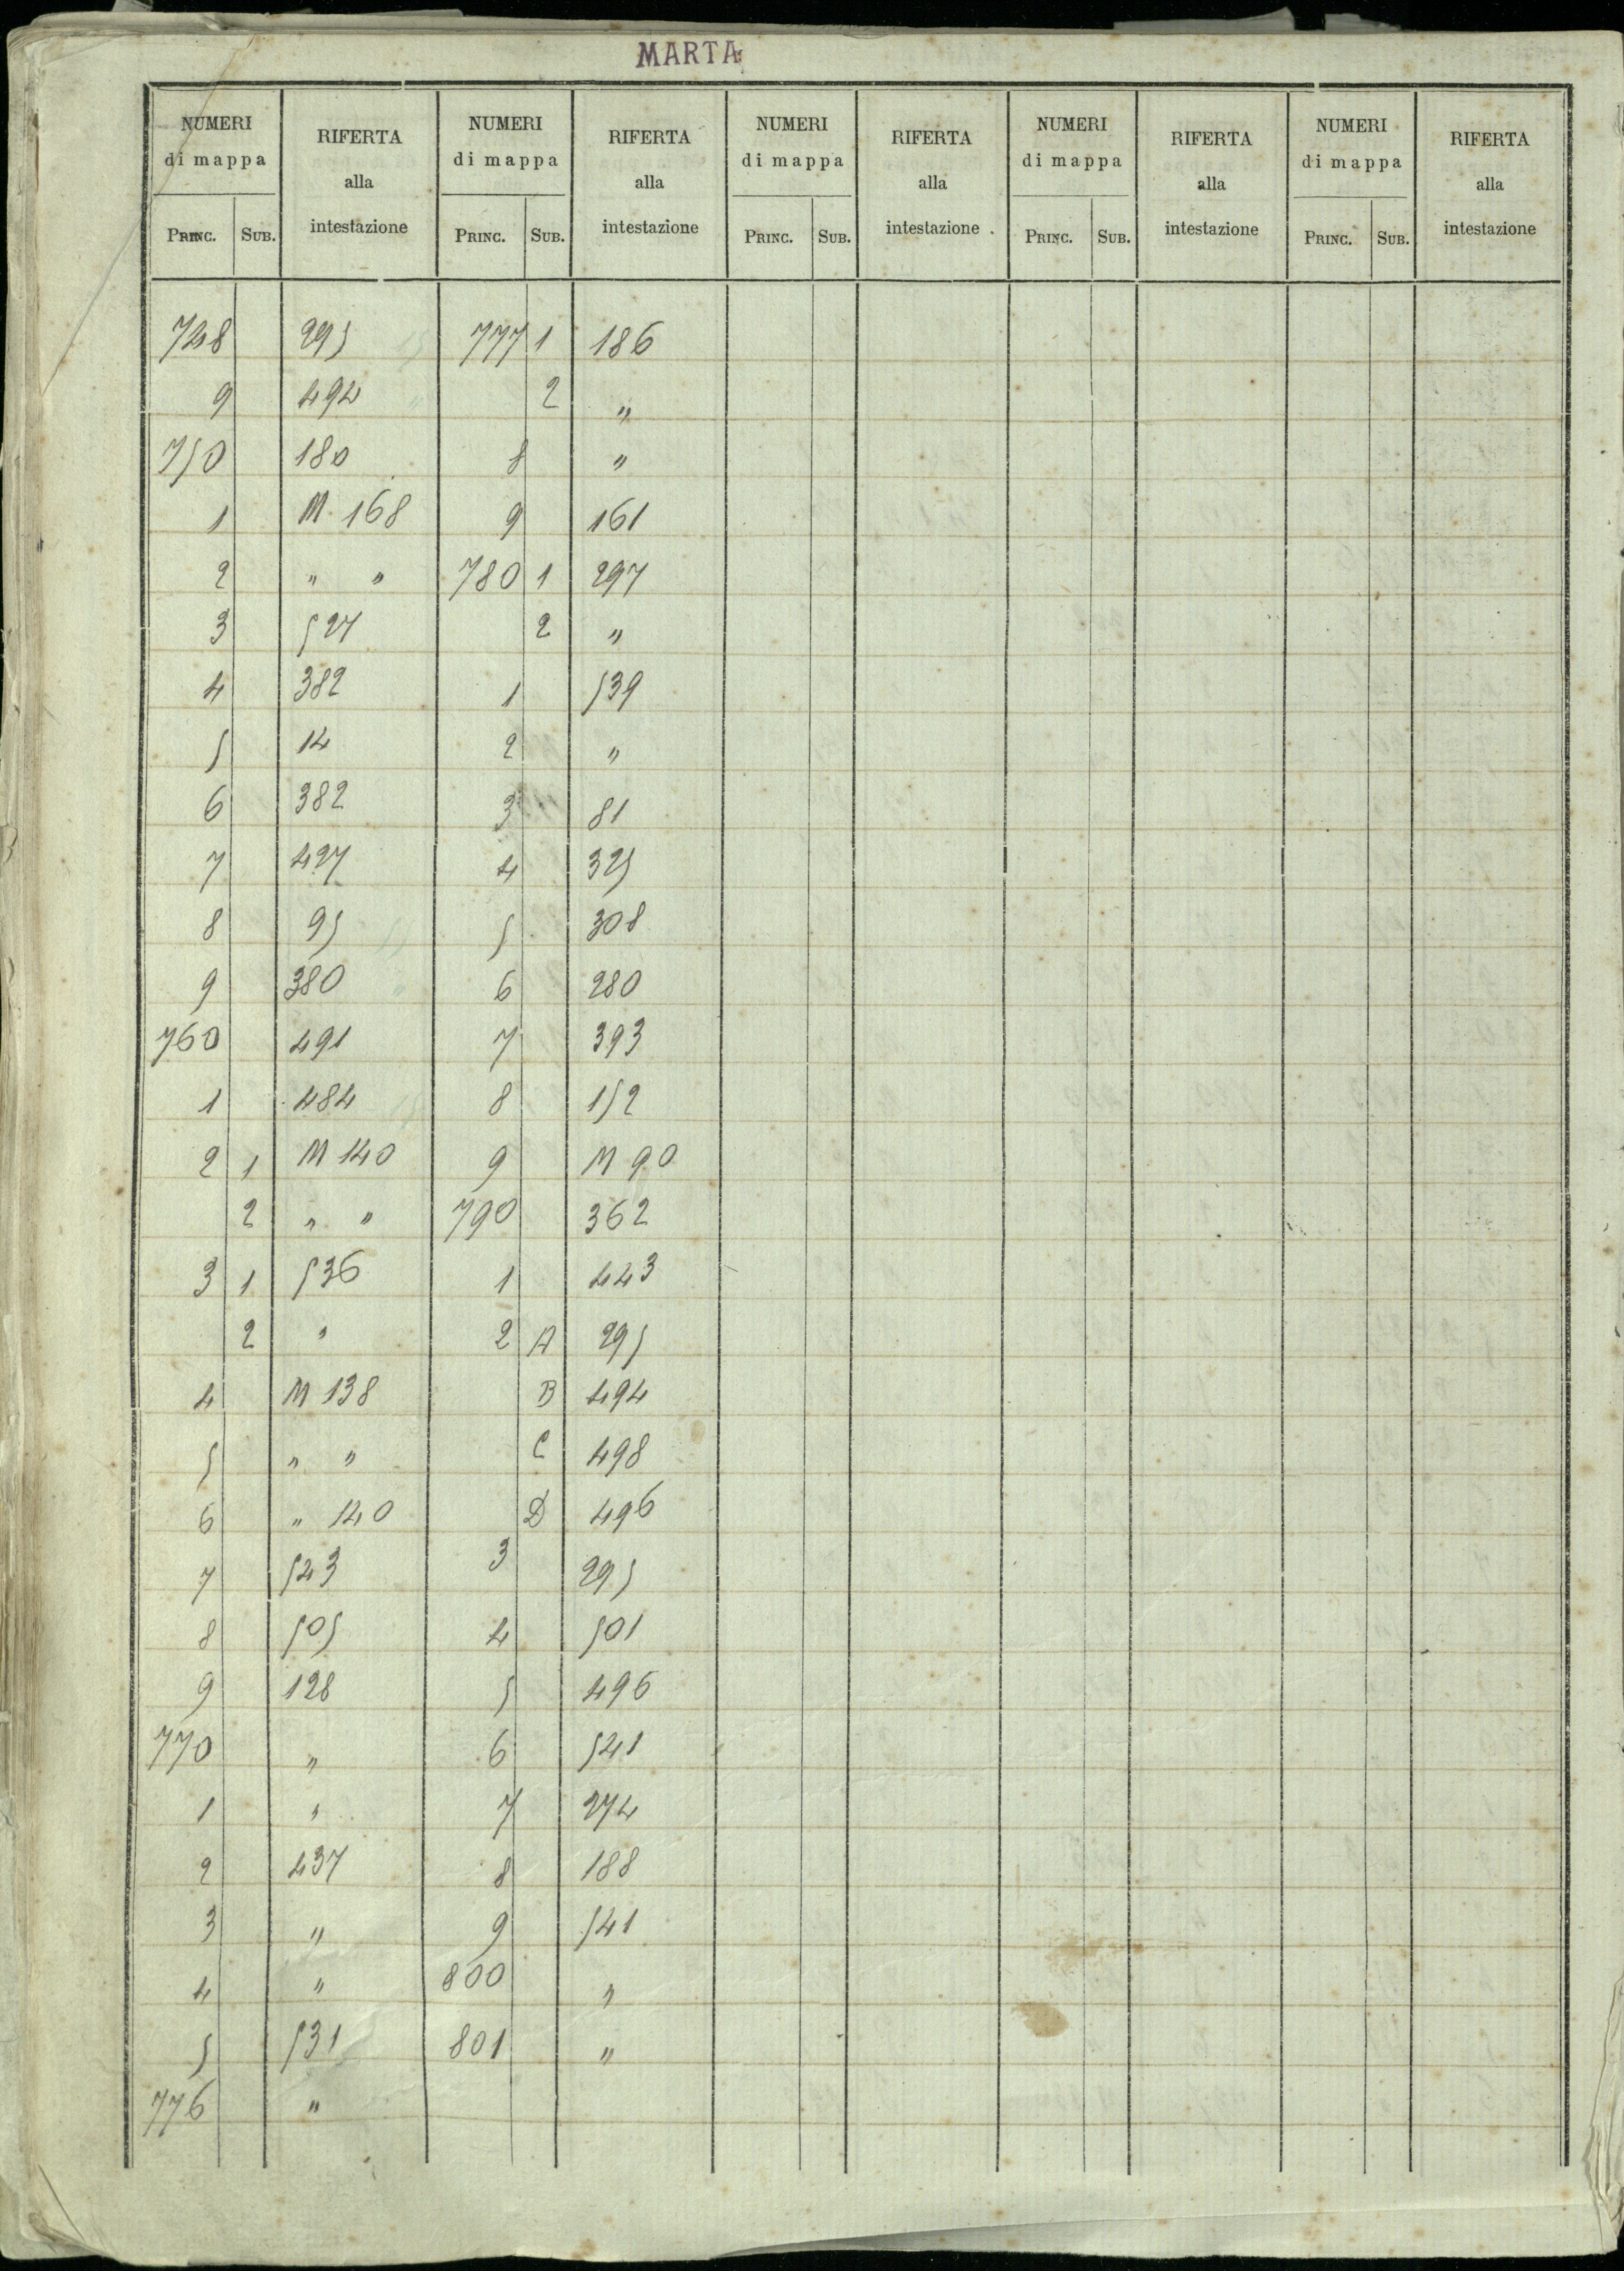 MARTA
NUMERI di mappa | RIFERTA alla intestazione | NUMERI di mappa | RIFERTA alla intestazione | NUMERI di mappa | RIFERTA alla intestazione | NUMERI di mappa | RIFERTA alla intestazione | NUMERI di mappa | RIFERTA alla intestazione
PRINC. | SUB. | PRINC. | SUB. | PRINC. | SUB. | PRINC. | SUB. | PRINC. | SUB.
748 | | 295 | 777 | 1 | 186
9 | | 494 | | 2 | "
750 | | 180 | 8 | | "
1 | | M 168 | 9 | | 161
2 | | " " | 780 | 1 | 297
3 | | 527 | | 2 | "
4 | | 382 | 1 | | 539
5 | | 14 | 2 | | "
6 | | 382 | 3 | | 81
7 | | 427 | 4 | | 325
8 | | 95 | 5 | | 308
9 | | 380 | 6 | | 280
760 | | 491 | 7 | | 393
1 | | 484 | 8 | | 152
2 | 1 | M 140 | 9 | | M 90
| 2 | " " | 790 | | 362
3 | 1 | 536 | 1 | | 443
| 2 | " | 2 | A | 295
4 | | M 138 | | B | 494
5 | | " " | | C | 498
6 | | " 140 | | D | 496
7 | | 543 | 3 | | 295
8 | | 505 | 4 | | 501
9 | | 128 | 5 | | 496
770 | | " | 6 | | 541
1 | | " | 7 | | 274
2 | | 437 | 8 | | 188
3 | | " | 9 | | 541
4 | | " | 800 | | "
5 | | 531 | 801 | | "
776 | | "